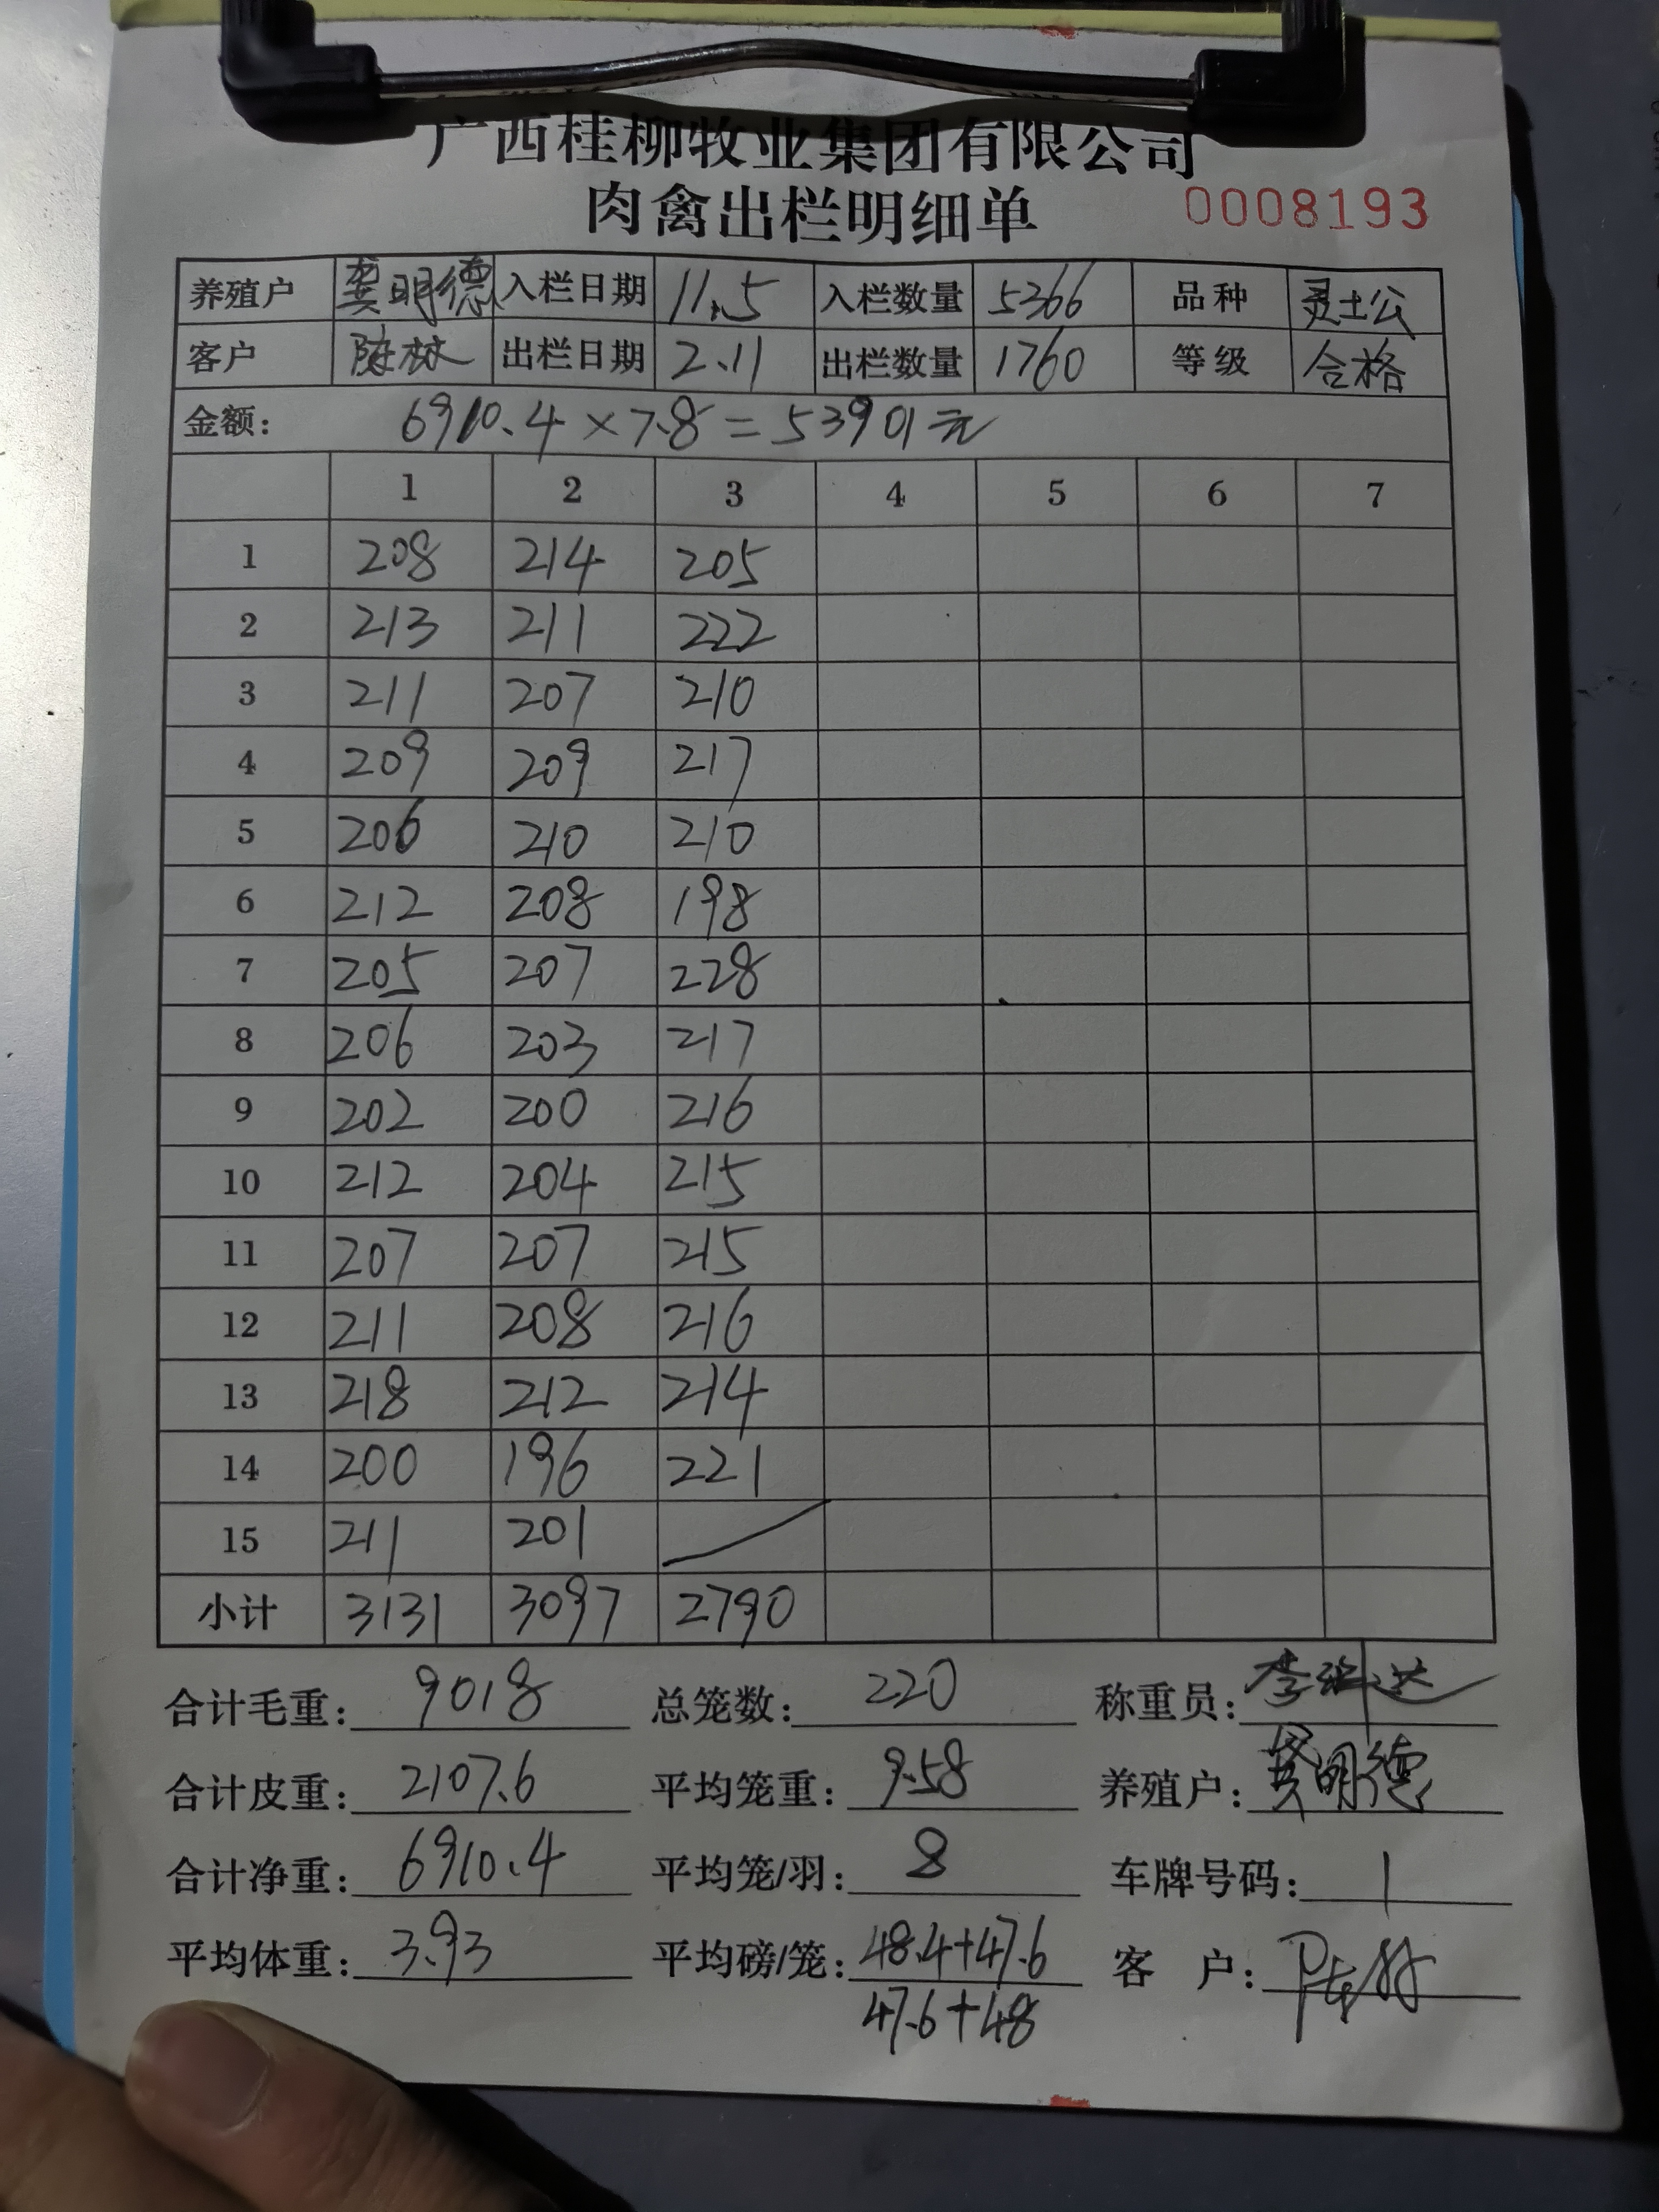 广西桂柳牧业集团有限公司
肉禽出栏明细单 0008193
养殖户 龚明德 入栏日期 11.5 入栏数量 5366 品种 灵土公
客户 陆林 出栏日期 2.11 出栏数量 1760 等级 合格
金额: 6910.4×7.8=53901元
1 2 3 4 5 6 7
1 208 214 205
2 213 211 222
3 211 207 210
4 209 209 217
5 206 210 210
6 212 208 198
7 205 207 228
8 206 203 217
9 202 200 216
10 212 204 215
11 207 207 215
12 211 208 216
13 218 212 214
14 200 196 221
15 211 201
小计 3131 3097 2790
合计毛重: 9018 总笼数: 220 称重员: 李
合计皮重: 2107.6 平均笼重: 9.58 养殖户: 龚明德
合计净重: 6910.4 平均笼/羽: 8 车牌号码: 1
平均体重: 3.93 平均磅/笼: 48.4+47.6 客 户: 陆林
47.6+48